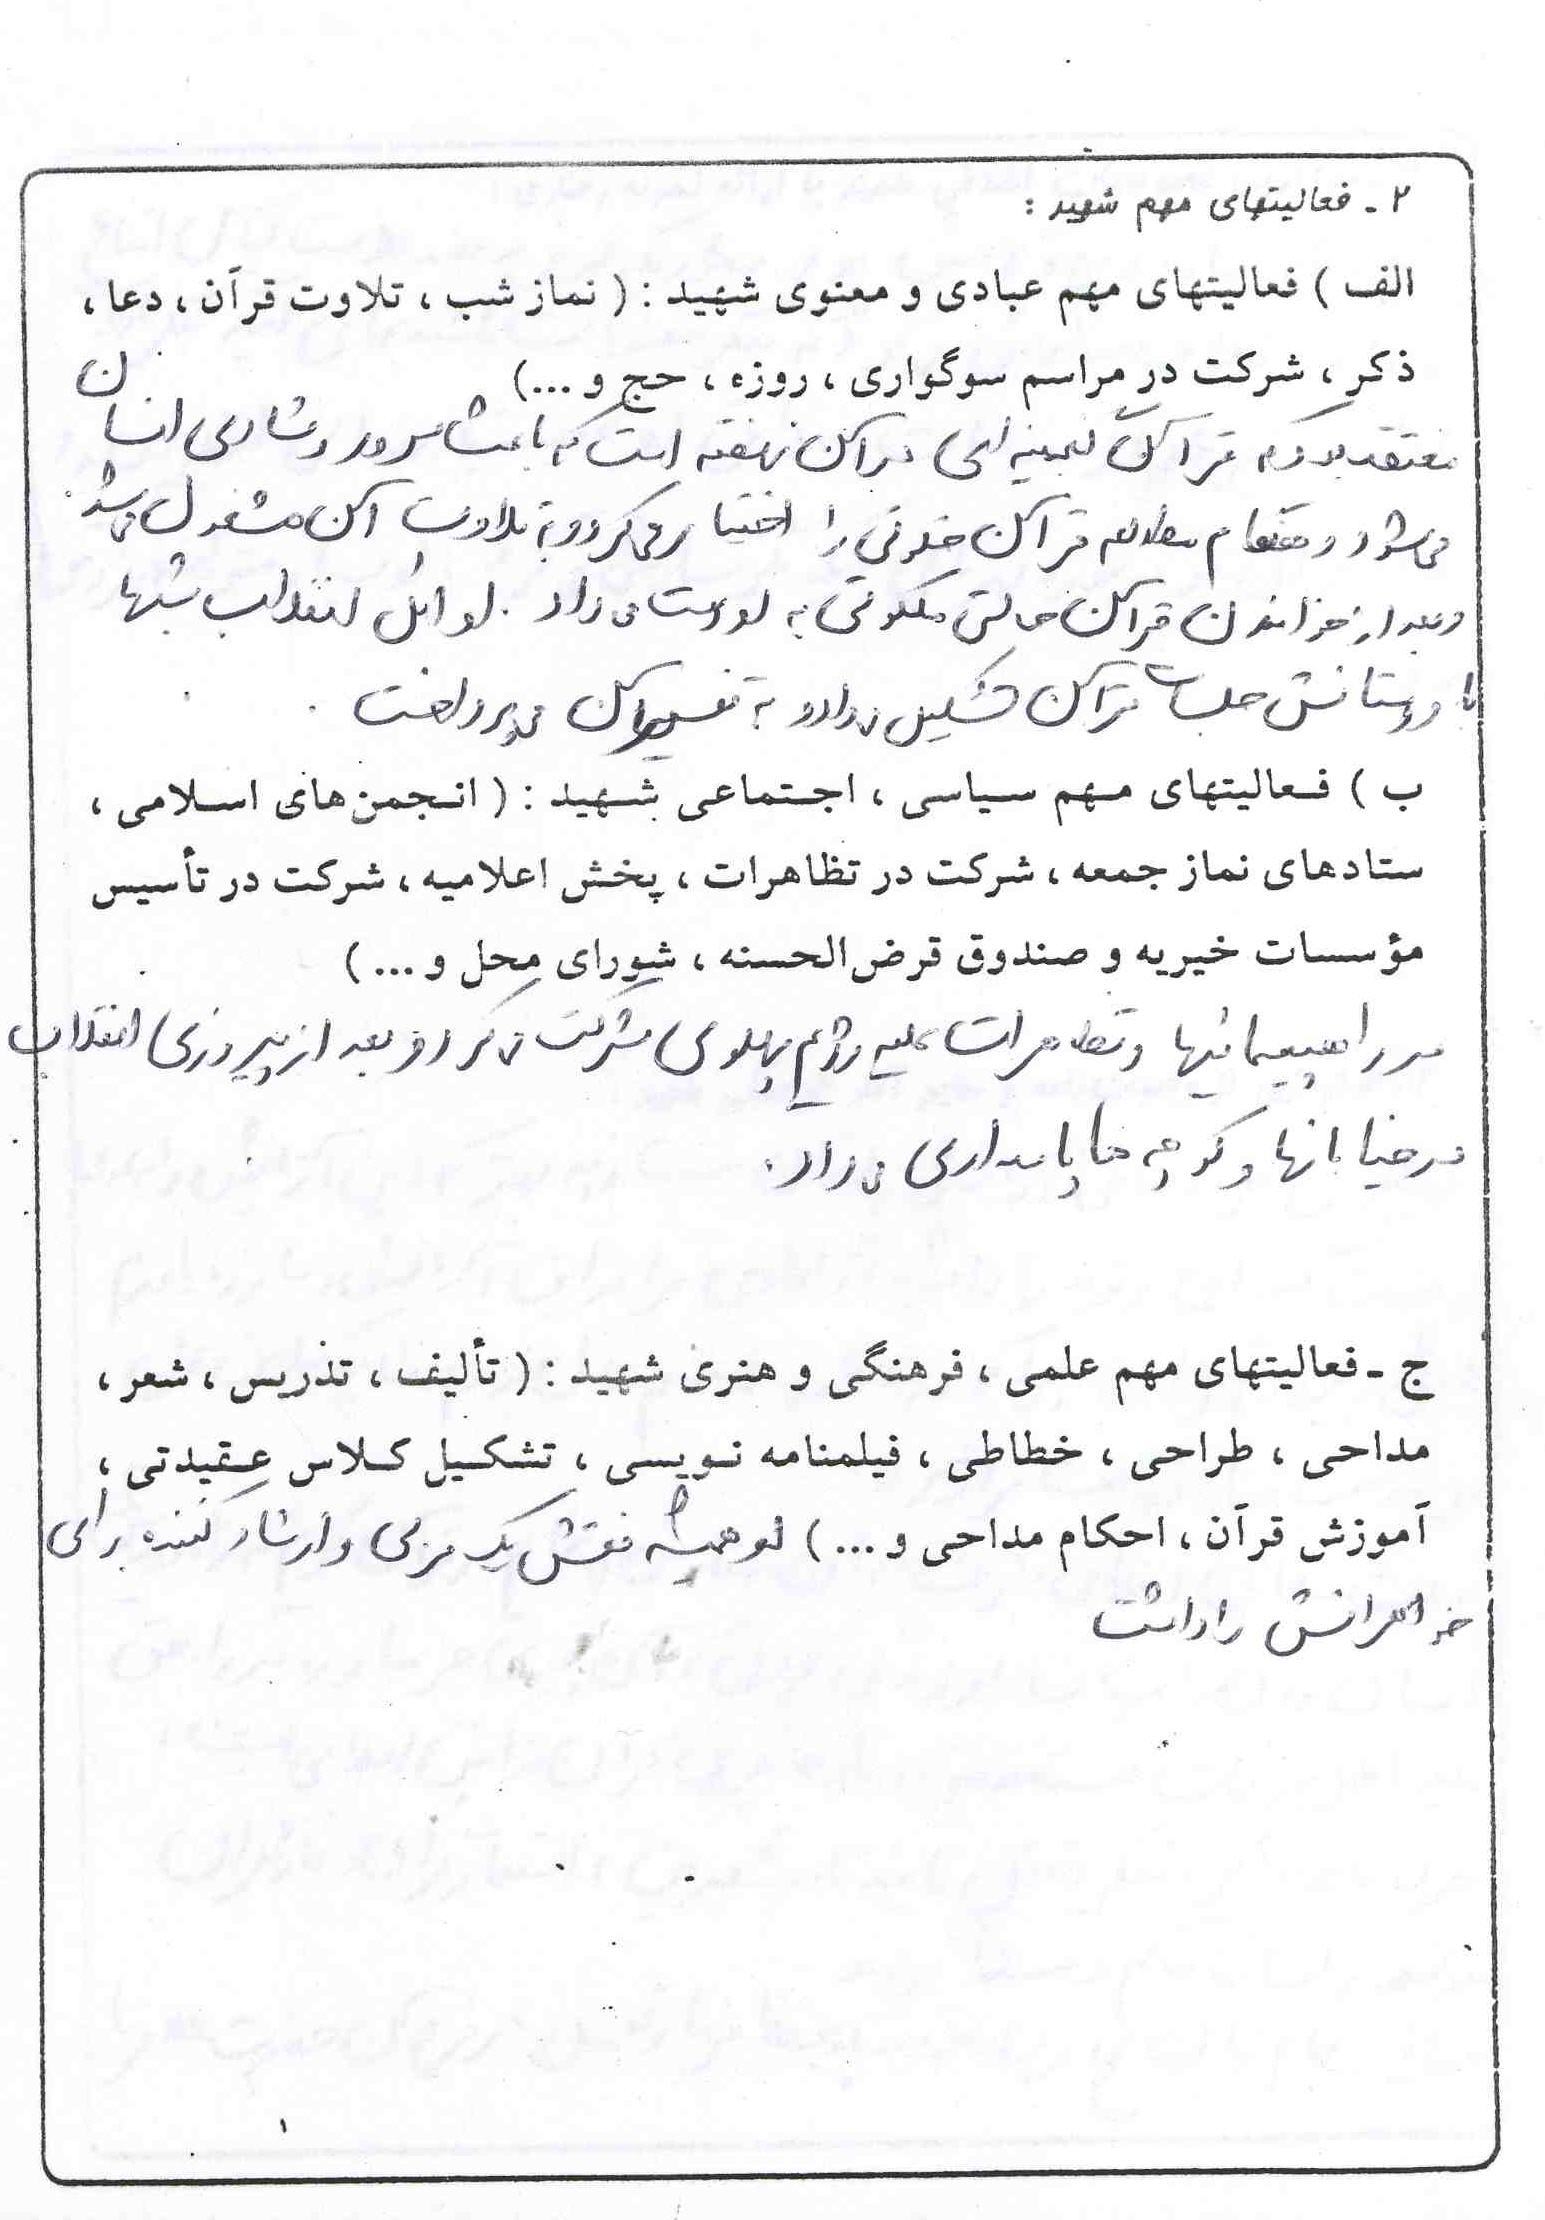 ۲ - فعالیتهای مهم شهید :
الف ) فعالیتهای مهم عبادی و معنوی شهید : ( نماز شب ، تلاوت قرآن ، دعا ،
ذکر ، شرکت در مراسم سوگواری ، روزه ، حج و ...)
معتقد بود که قرآن گنجینه ای در آن نهفته است که باعث سرور و شادی انسان
می شود و هنگام مطالعه قرآن خلوتی را اختیار می کرد و به تلاوت آن مشغول می شد.
و بعد از خواندن قرآن حالتی ملکوتی به او دست می داد . اوائل انقلاب شبها
با دوستانش جلسات قرآن تشکیل می داد و به تفسیر آن می پرداخت .
ب ) فعالیتهای مهم سیاسی ، اجتماعی شهید : ( انجمن های اسلامی ،
ستادهای نماز جمعه ، شرکت در تظاهرات ، پخش اعلامیه ، شرکت در تأسیس
مؤسسات خیریه و صندوق قرض الحسنه ، شورای محل و ... )
در راهپیمائیها و تظاهرات علیه رژیم پهلوی شرکت می کرد و بعد از پیروزی انقلاب
در خیابانها و کوچه ها پاسداری می داد .
ج - فعالیتهای مهم علمی ، فرهنگی و هنری شهید : ( تألیف ، تدریس ، شعر ،
مداحی ، طراحی ، خطاطی ، فیلمنامه نویسی ، تشکیل کلاس عقیدتی ،
آموزش قرآن ، احکام مداحی و ... ) او همیشه نقش یک مربی و ارشاد کننده برای
خواهرانش را داشت
۱